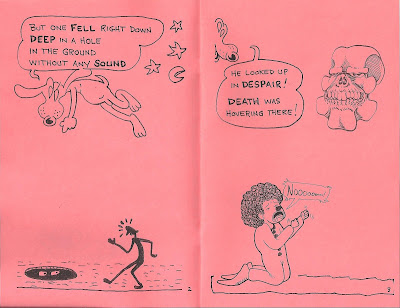 BUT ONE FELL RIGHT DOWN
DEEP IN A HOLE
IN THE GROUND
WITHOUT ANY SOUND
2
HE LOOKED UP
IN DESPAIR!
DEATH WAS
HOVERING THERE!
NOOOOOOOO!
3